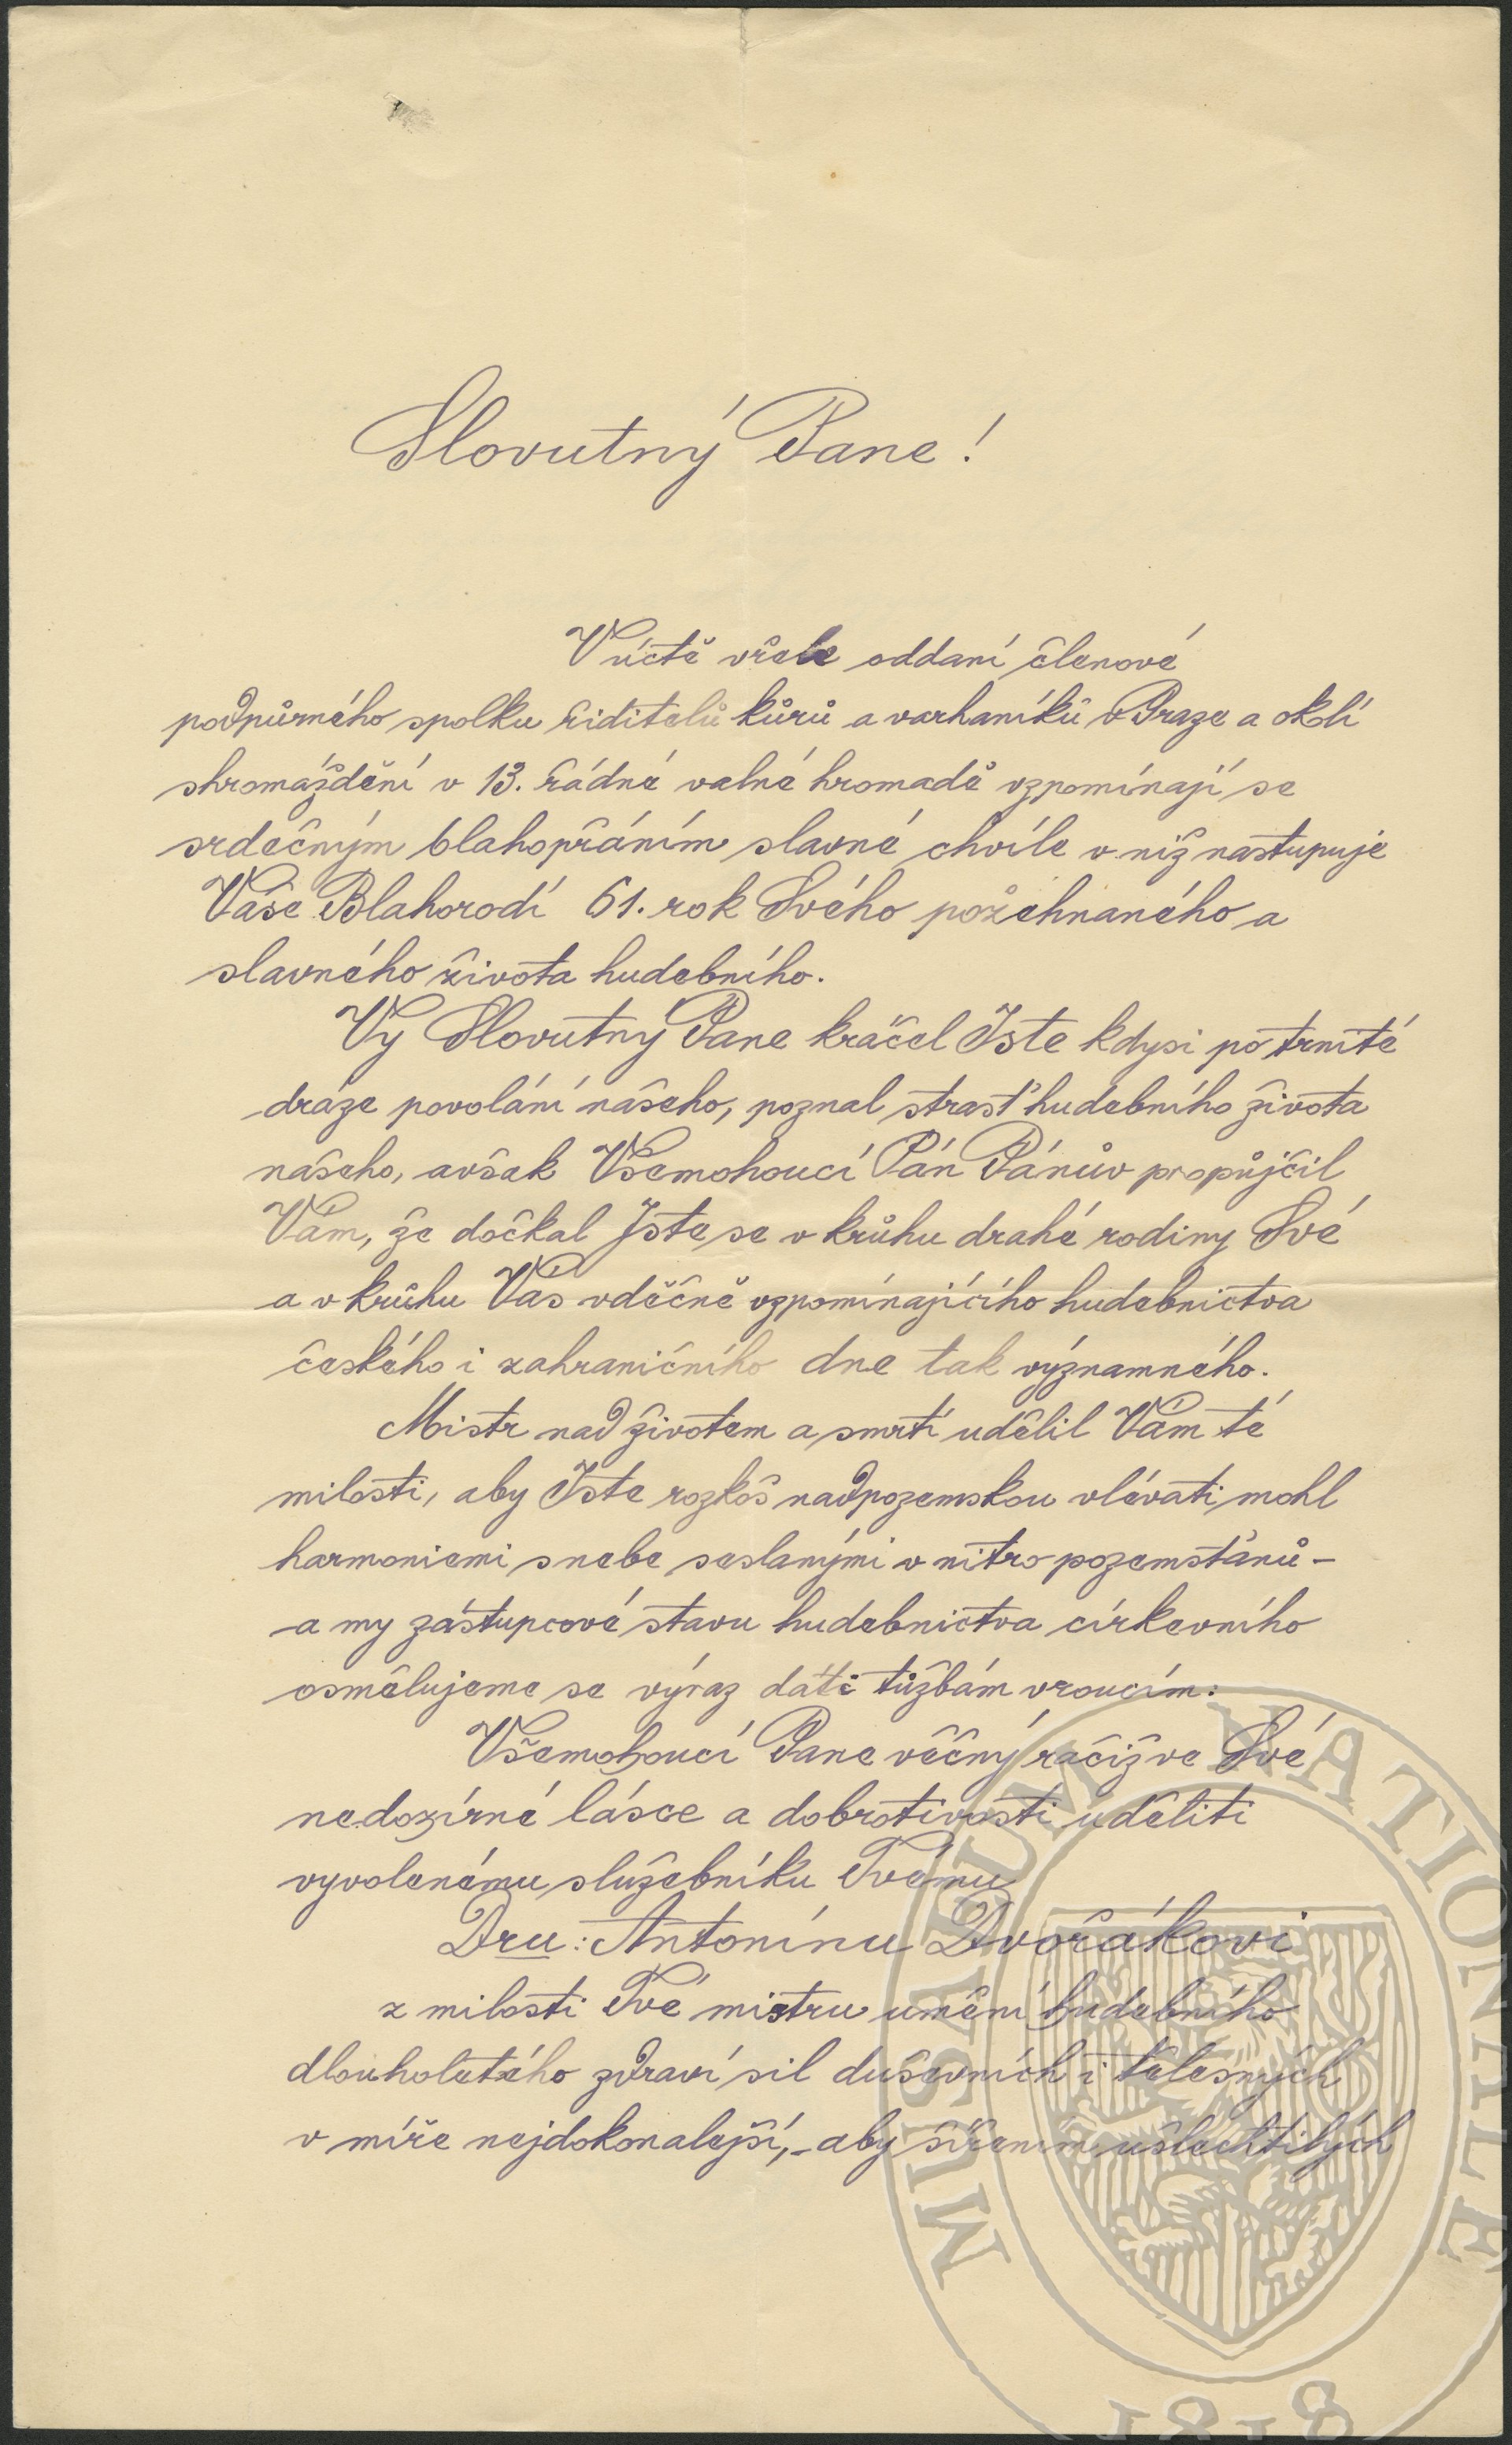 Slovutný Pane!
V úctě vřele oddaní členové
podpůrného spolku řiditelů kůrů a varhaníků v Praze a okolí
shromáždění v 13. řádné valné hromadě vzpomínají se
srdečným blahopřáním slavné chvíle v níž nastupuje
Vaše Blahorodí 61. rok Svého požehnaného a
slavného života hudebního.
Vy Slovutný Pane kráčel Jste kdysi po trnité
dráze povolání našeho, poznal strasť hudebního života
našeho, avšak Všemohoucí Pán Pánův propůjčil
Vám, že dočkal Jste se v krůhu drahé rodiny Své
a v krůhu Vás vděčně vzpomínajícího hudebnictva
českého i zahraničního dne tak významného.
Mistr nad životem a smrtí udělil Vám té
milosti, aby Jste rozkoš nadpozemskou vlévati mohl
harmoniemi s nebe seslanými v nitro pozemšťanů –
a my zástupcové stavu hudebnictva církevního
osmělujeme se výraz dáti tůžbám vroucím:
Všemohoucí Pane věčný račiž ve Své
nedozírné lásce a dobrotivosti uděliti
vyvolenému služebníku Tvému
Dru: Antonínu Dvořákovi
z milosti Tvé mistru umění hudebního
dlouholetého zdraví sil duševních i tělesných
v míře nejdokonalejší, – aby šířením ušlechtilých
MUSAEUM NATIONALE
1818